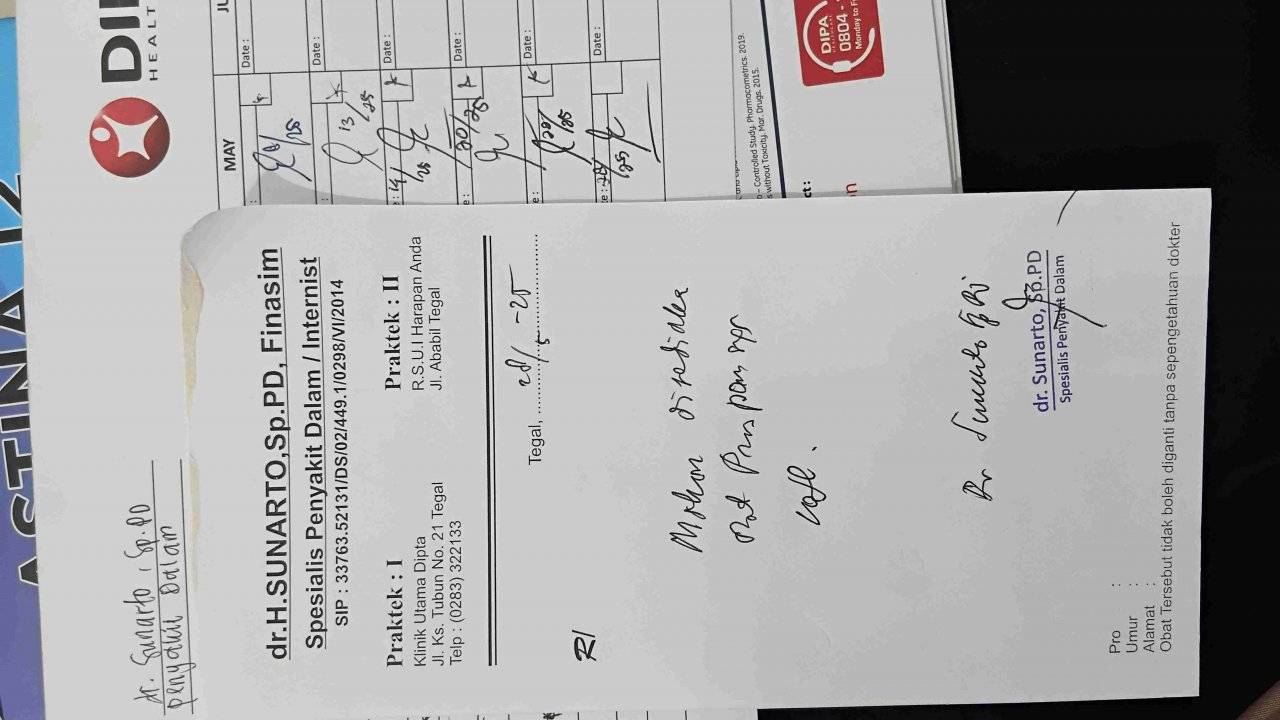 ASTINA
DIPA
HEALT
dr. Sunarto, Sp.PD
Penyakit Dalam
MAY
JU
Date :
Date :
Date :
Date :
Date :
Date :
13/25
14/25
20/25
20/25
28/25
- Controlled Study. Pharmacometrics. 2019.
s without Toxicity. Mar. Drugs. 2015.
DIPA
0804-
Monday to F
ct :
n
dr.H.SUNARTO,Sp.PD, Finasim
Spesialis Penyakit Dalam / Internist
SIP : 33763.52131/DS/02/449.1/0298/VII/2014
Praktek : I
Klinik Utama Dipta
Jl. Ks. Tubun No. 21 Tegal
Telp : (0283) 322133
Praktek : II
R.S.U.I Harapan Anda
Jl. Ababil Tegal
Tegal, 28/5-25
R/
Mohon disediakan
obat
Dr Sunarto
dr. Sunarto, Sp.PD
Spesialis Penyakit Dalam
Pro :
Umur :
Alamat :
Obat Tersebut tidak boleh diganti tanpa sepengetahuan dokter